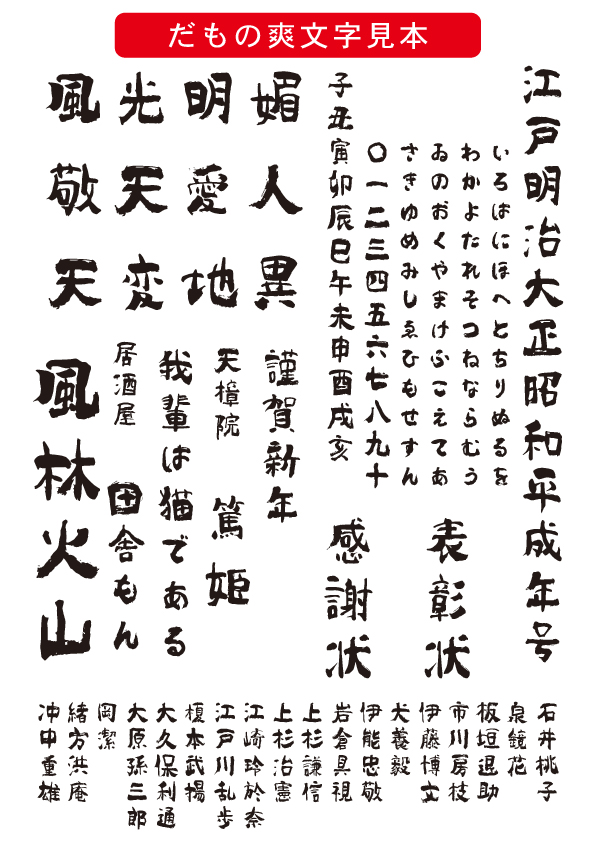 だもの爽文字見本
江戸明治大正昭和平成年号
いろはにほへとちりぬるを
わかよたれそつねならむう
ゐのおくやまけふこえてあ
さきゆめみしゑひもせすん
〇一二三四五六七八九十
子丑寅卯辰巳午未申酉戌亥
表彰状
感謝状
媚人異
明愛地
光天変
風敬天
謹賀新年
天樟院
篤姫
我輩は猫である
居酒屋
田舎もん
風林火山
石井桃子
泉鏡花
板垣退助
市川房枝
伊藤博文
犬養毅
伊能忠敬
岩倉具視
上杉謙信
上杉治憲
江崎玲於奈
江戸川乱歩
榎本武揚
大久保利通
大原孫三郎
岡潔
緒方洪庵
沖中重雄